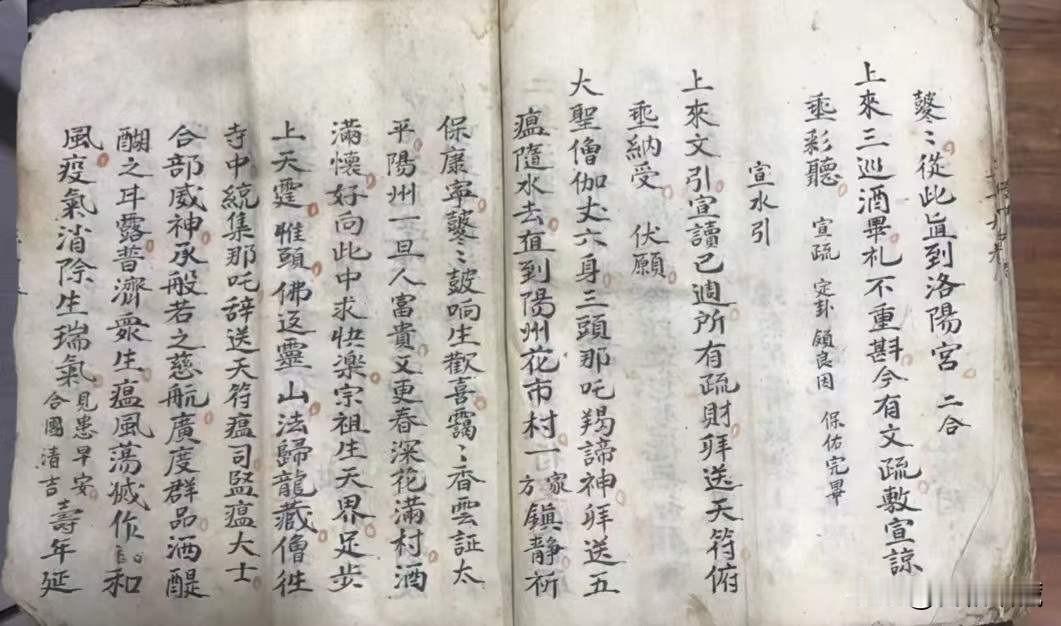 鼕〻從此直到洛陽宮 二合
上來三巡酒畢札不重斟今有文疏敷宣諒
垂彩聽 宣疏 定卦 頗良因 保佑完畢
宣水引
上來文引宣讀已週所有疏財拜送天符俯
垂納受 伏願
大聖僧伽丈六身三頭那吒揭諦神拜送五
瘟隨水去直到陽州花市村一方家鎮靜祈
保康寧鼕〻鼓响生歡喜靄〻香雲証太
平陽州一旦人富貴又更春深花滿村酒
滿懷好向此中求快楽宗祖生天界足步
上天霆惟頭佛返靈山法歸龍藏僧徃
寺中統集那吒辞送天符瘟司監瘟大士
合部威神承般若之慈航廣度群品洒醍
醐之耳露普濟衆生瘟風蕩捄作和
風疫氣消除生瑞氣見患早安合國清吉壽年延